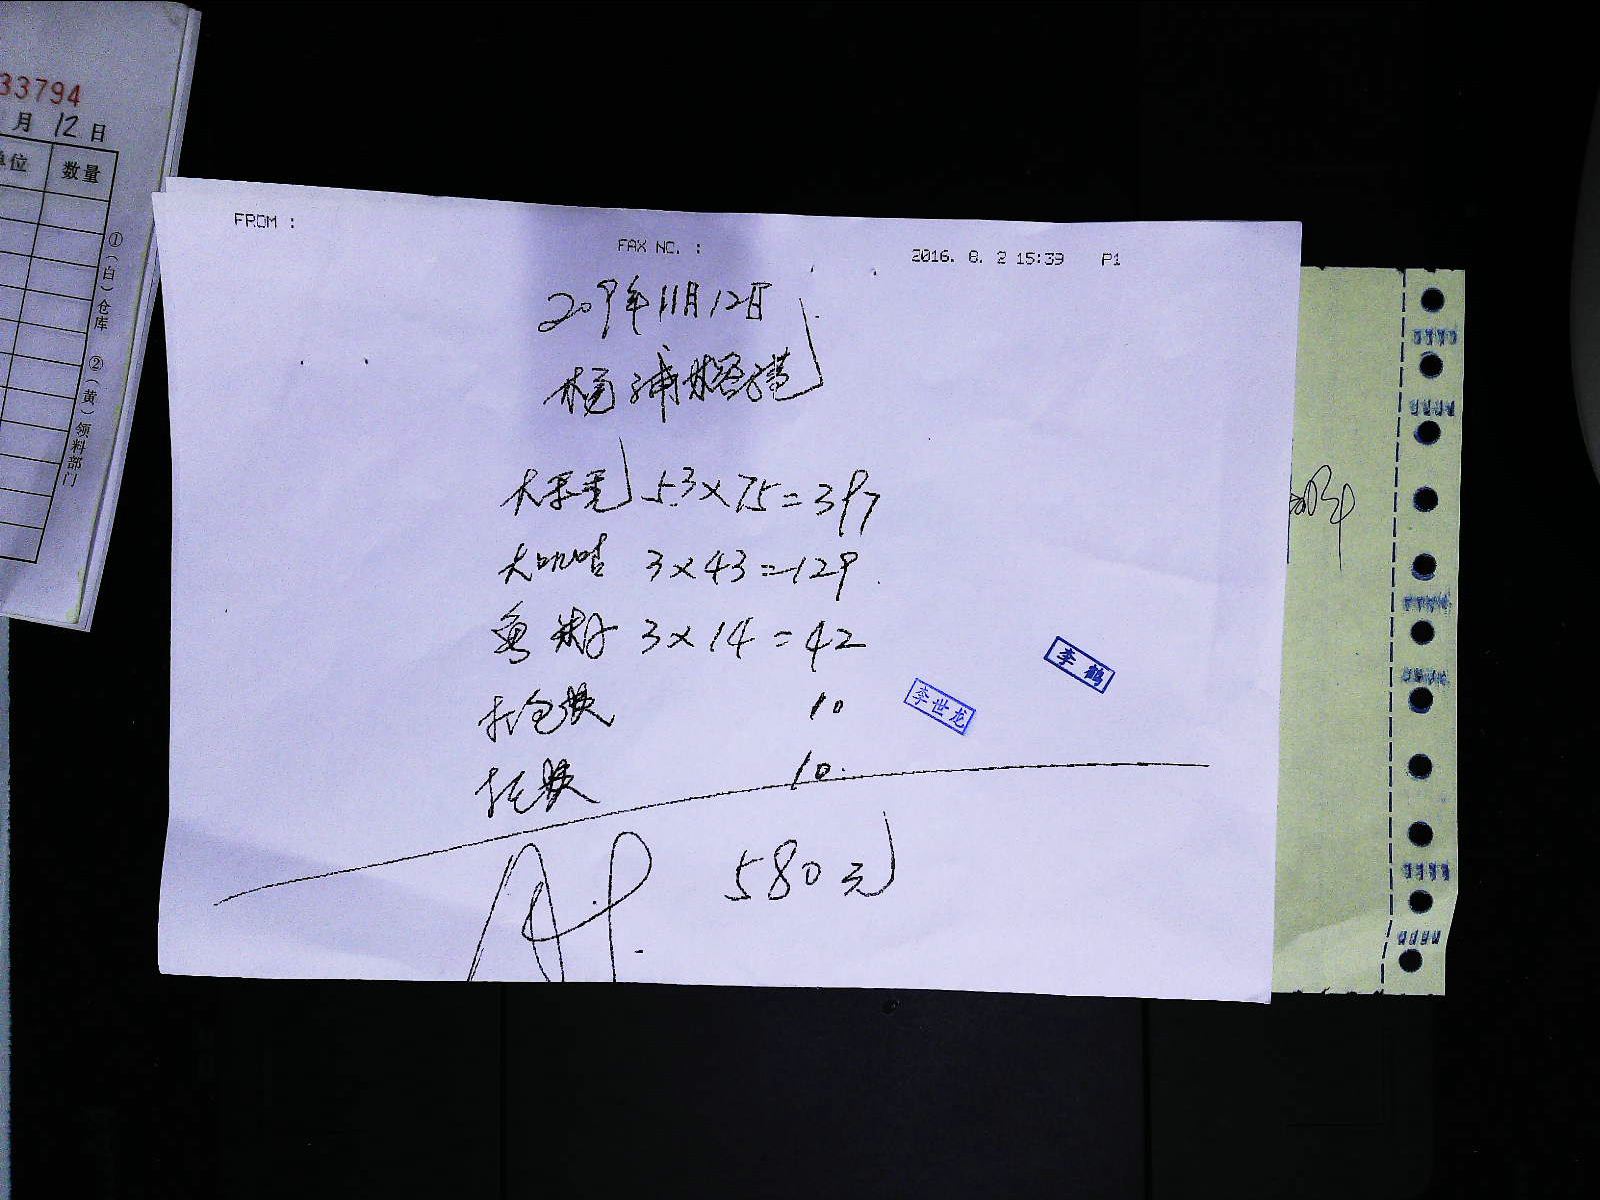 33794
月 12 日
单位 数量
①(白)仓库 ②(黄)领料部门
FROM :
FAX NO. :
2016. 8. 2 15:39 P1
2019年11月12日
杨浦
大 5.3×75=397
大 3×43=129
鱼 3×14=42
打包费 10
托费 10
580元
李鹤
李世龙